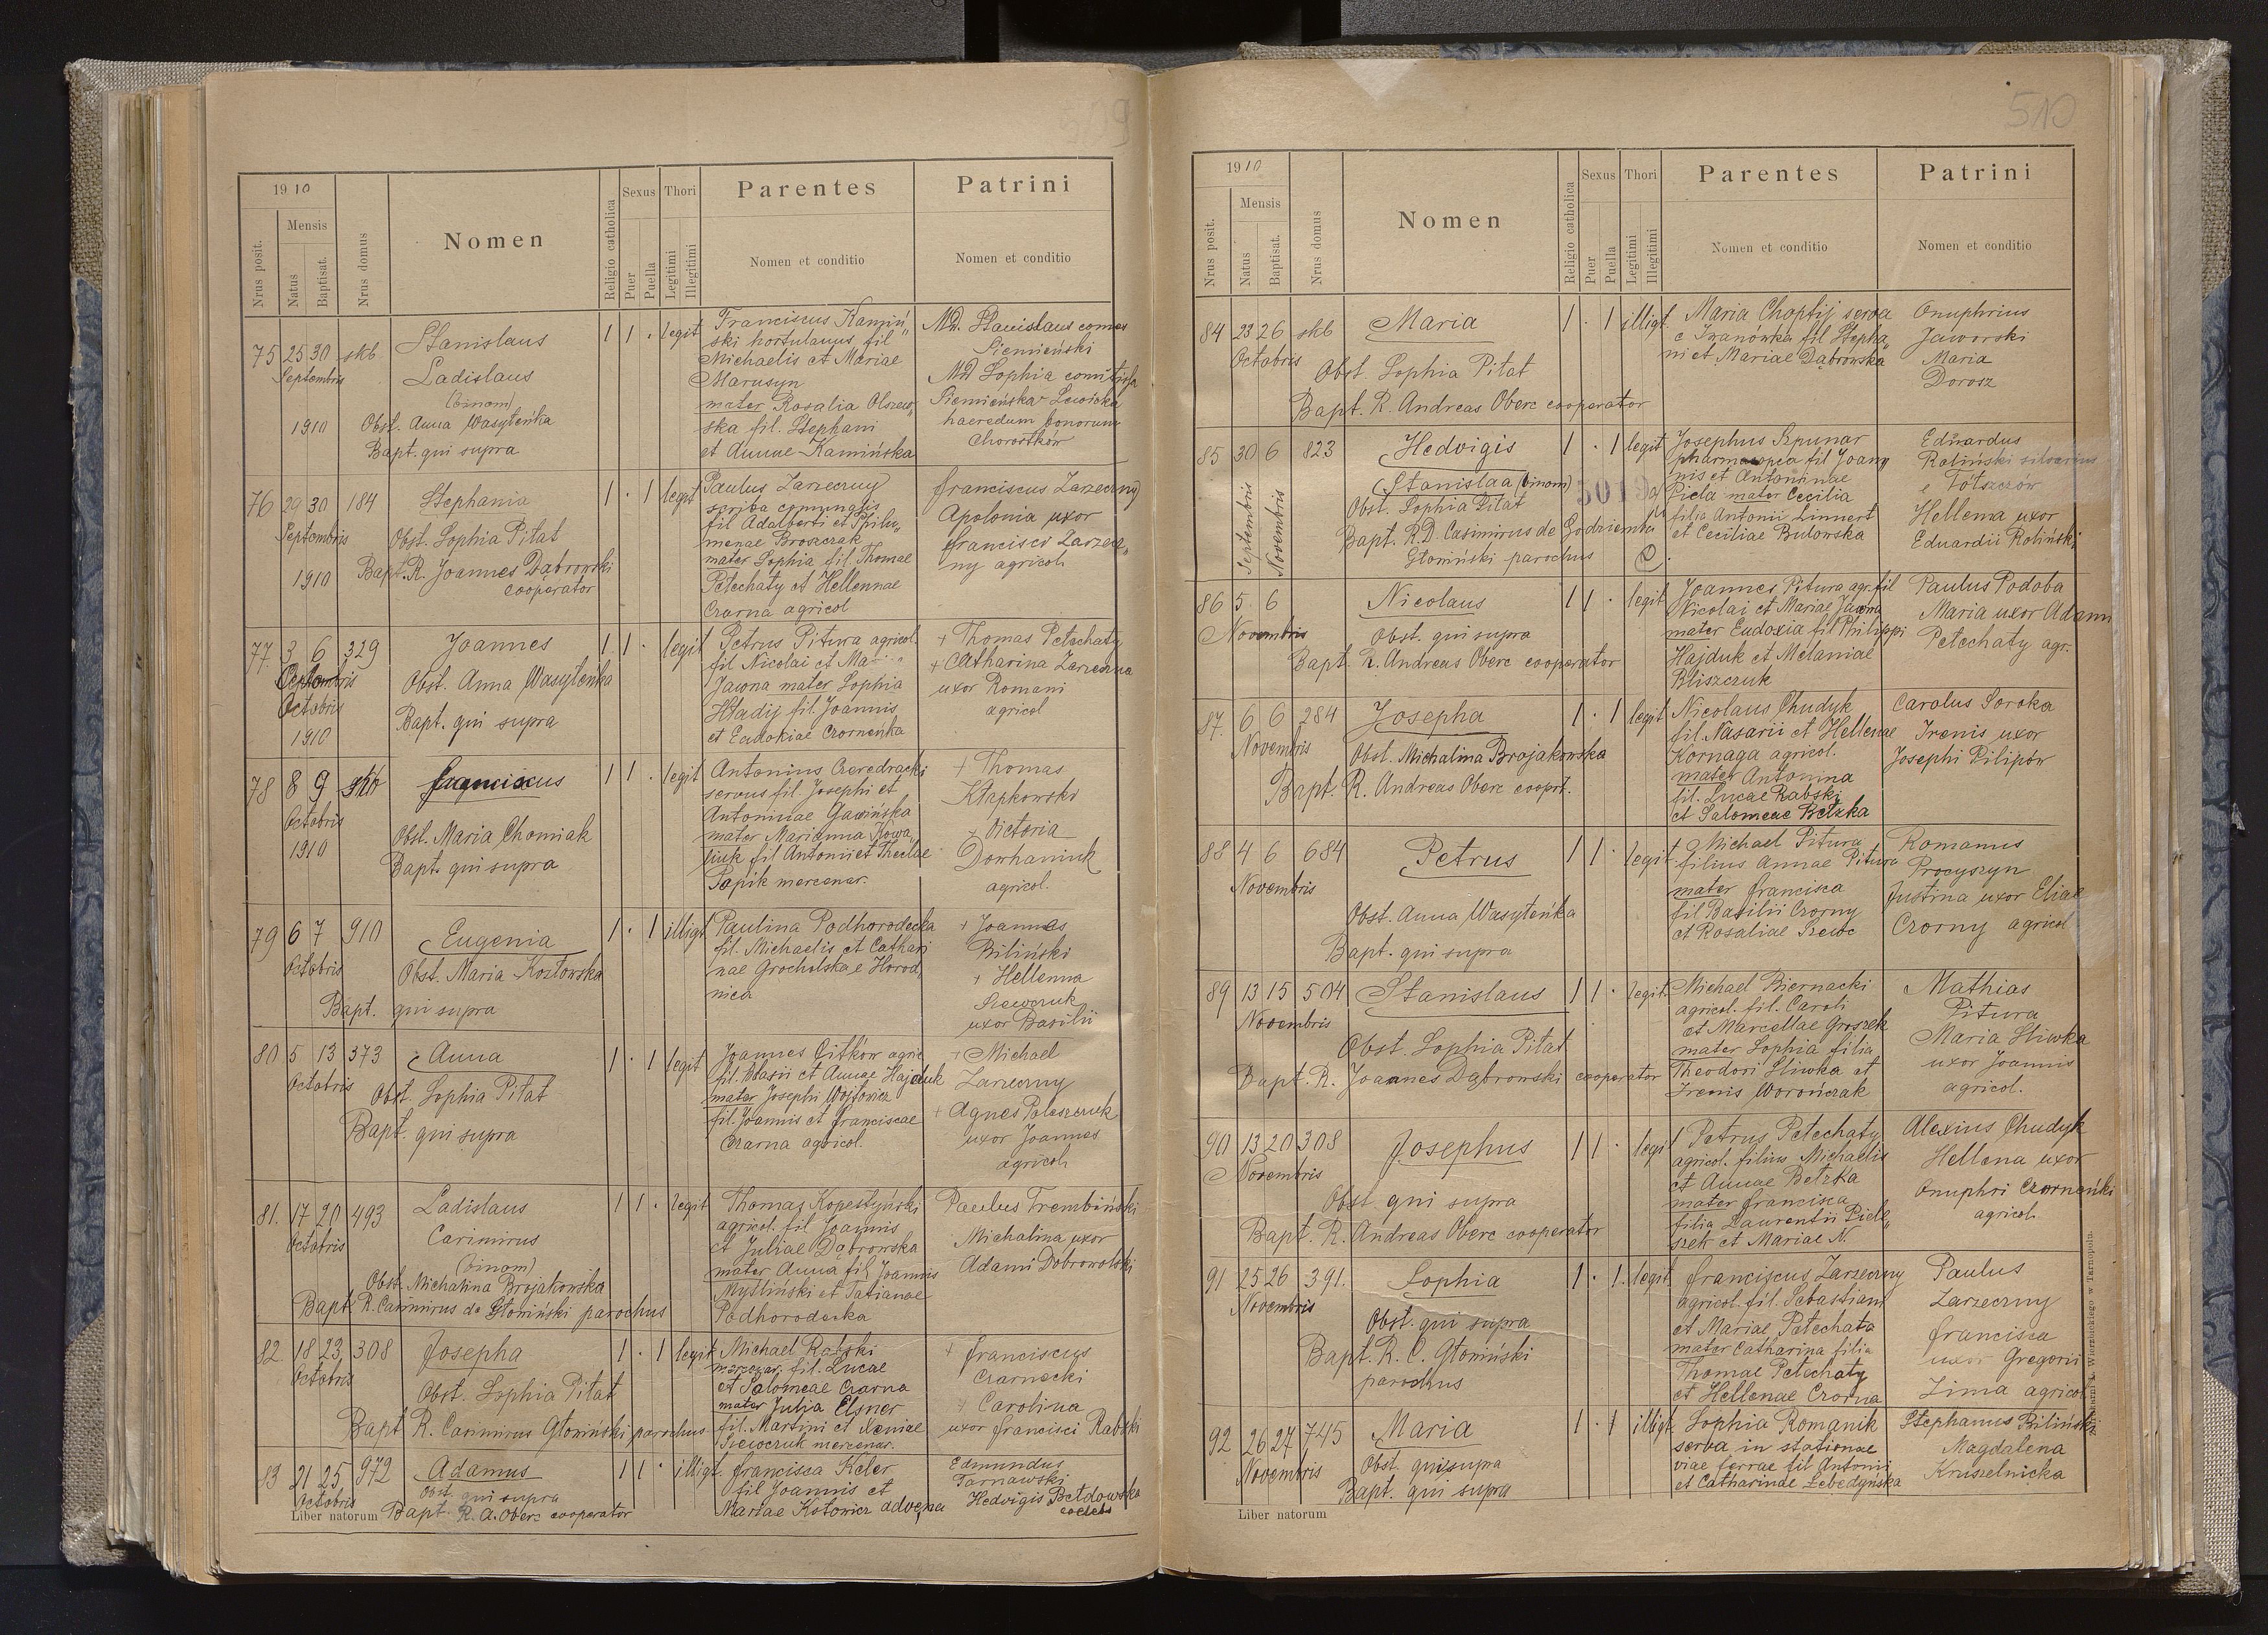 509
1910
Nrus posit.
Mensis
Natus
Baptisat.
Nrus domus
Nomen
Religio catholica
Sexus
Puer
Puella
Thori
Legitimi
Illegitimi
Parentes
Nomen et conditio
Patrini
Nomen et conditio
75 25 30 skb Stanislaus 1 1 · legit
Septembris Ladislaus
(binom)
1910 Obst. Anna Wasyleńka
Bapt. qui supra
Franciscus Kamiń„
ski hortulanus fil
Michaelis et Mariae
Marusyn
mater Rosalia Olszew„
ska fil. Stephani
et Annae Kamińska
MD. Stanislaus comes
Siemieński
MD Sophia comitissa
Siemieńska Lewicka
haeredum bonorum
Chorostków
76 29 30 184 Stephania 1 · 1 legit
Septembris Obst. Sophia Pitat
1910 Bapt. R. Joannes Dąbrowski
cooperator
Paulus Zarzeczny
scriba communalis
fil Adalberti et Philo„
menae Broszczak
mater Sophia fil. Thomae
Petechaty et Hellennae
Czarna agricol
Franciscus Zarzeczny
Apolonia uxor
Francisci Zarzecz„
ny agricol
77 3 6 329 Joannes 1 1 · legit
Septembris
Octobris Obst. Anna Wasyleńka
1910 Bapt. qui supra
Petrus Pitura agricol.
fil Nicolai et Ma
Jawna mater Sophia
Hładij fil. Joannis
et Eudokiae Czorneńka
+ Thomas Petechaty
+ Catharina Zarzeczna
uxor Romani
agricol
78 8 9 skb Franciscus 1 1 · legit
Octobris
1910 Obst. Maria Chomiak
Bapt. qui supra
Antonius Czeredracki
servus fil. Josephi et
Antoninae Gawińska
mater Marianna Kowa„
liuk fil Antonii et Theclae
Sapik mercenar.
+ Thomas
Kłapkowski
+ Victoria
Dowhaniuk
agricol.
79 6 7 910 Eugenia 1 · 1 illigt
Octobris Obst. Maria Kozłowska
Bapt. qui supra
Paulina Podhorodecka
fil. Michaelis et Cathari
nae Grocholska e Horod„
nica
+ Joannes
Biliński
+ Hellenna
Szewczuk
uxor Basilii
80 5 13 373 Anna 1 · 1 legit
Octobris Obst. Sophia Pitat
Bapt. qui supra
Joannes Citków agric
fil. Blasii et Annae Hajduk
mater Josephi Wojtowicz
fil. Joannis et Franciscae
Czarna agricol.
+ Michael
Zarzeczny
+ Agnes Poleszczuk
uxor Joannes
agricol.
81. 17 20 493 Ladislaus 1 1 · legit
Octobris Casimirus
(binom)
Obst. Michalina Brojakowska
Bapt. R. Casimirus de Głomiński parochus
Thomas Kopestyński
agricol. fil Joannis
et Juliae Dąbrowska
mater Anna fil Joannis
Myśliński et Tatianae
Podhorodecka
Paulus Trembiński
Michalina uxor
Adami Dobrowolski
82 18 23 308 Josepha 1 · 1 legit
Octobris Obst. Sophia Pitat
Bapt R. Casimirus Głomiński parochus
Michael Rabski
mercenar. fil. Lucae
et Salomeae Czarna
mater Julia Elsner
fil. Martini et Xeniae
Szewczuk mercenar.
+ Franciscus
Czarnecki
+ Carolina
uxor Francisci Rabski
83 21 25 972 Adamus 1 1 · illigt.
Octobris Obst. qui supra
Bapt. R. A. Oberc cooperator
Francisca Keler
fil Joannis et
Mariae Kotowicz advena
Edmundus
Tarnawski
Hedvigis Betdowska
coelebs
Liber natorum
510
1910
Nrus posit.
Mensis
Natus
Baptisat.
Nrus domus
Nomen
Religio catholica
Sexus
Puer
Puella
Thori
Legitimi
Illegitimi
Parentes
Nomen et conditio
Patrini
Nomen et conditio
84 23 26 skb Maria 1 · 1 illigt.
Octobris Obst. Sophia Pitat
Bapt. R. Andreas Oberc cooperator
Maria Choptij serva
e Iwanówka fil Stepha„
ni et Mariae Dąbrowska
Onuphrius
Jaworski
Maria
Dorosz
85 30 6 823 Hedvigis 1 · 1 legit
Septembris Novembris
Stanislaa (binom)
Obst. Sophia Pitat
Bapt. R.D. Casimirus de Godziemba
Głomiński parochus
Josephus Szpunar
pharmacopea fil Joann
nis et Antoninae
Piela mater Cecilia
filia Antonii Linnert
et Ceciliae Bulowska
Eduardus
Roliński silvarius
e Tołszczów
Hellena uxor
Eduardii Roliński
86 5 6 Nicolaus 1 1 · legit
Novembris Obst. qui supra
Bapt. R. Andreas Oberc cooperator
Joannes Pitura agr. fil
Nicolai et Mariae Jawna
mater Eudoxia fil Philippi
Hajduk et Melaniae
Bliszczuk
Paulus Podoba
Maria uxor Adami
Petechaty agr.
87. 6 6 284 Josepha 1 · 1 legit
Novembris Obst. Michalina Brojakowska
Bapt. R. Andreas Oberc cooprt.
Nicolaus Chudyk
fil. Nasarii et Hellenae
Kornaga agricol.
mater Antonina
fil. Lucae Rabski
et Salomeae Betzka
Carolus Soroka
Irenis uxor
Josephi Pilipów
88 4 6 684 Petrus 1 1 · legit
Novembris
Obst. Anna Wasyleńka
Bapt. qui supra
Michael Pitura
filius Annae Pitura
mater Francisca
fil Basilii Czorny
et Rosaliae Szewc
Romanus
Procyszyn
Justina uxor Eliae
Czorny agricol
89 13 15 504 Stanislaus 1 1 · legit.
Novembris
Obst. Sophia Pitat
Bapt. R. Joannes Dąbrowski cooperator
Michael Biernacki
agricol. fil. Caroli
et Marcellae Groszek
mater Sophia filia
Theodori Sliwka et
IrenisWorończak
Mathias
Pitura
Maria Sliwka
uxor Joannis
agricol.
90 13 20 308 Josephus 1 1 · legit
Novembris
Obst qui supra
Bapt. R. Andreas Oberc cooperator
Petrus Petechaty
agricol. filius Michaelis
et Annae Betzka
mater Francisca
filia Laurentii Piele„
szek et Mariae N.
Alexius Chudyk
Hellena uxor
Onuphri Czorneńki
agricol.
91 25 26 391. Sophia 1 · 1. legit
Novembris Obst. qui supra
Bapt. R. C. Głomiński
parochus
Franciscus Zarzeczny
agricol. fil. Sebastiani
et Mariae Petechata
mater Catharina filia
Thomae Petechaty
et Hellenae Czorna
Paulus
Zarzeczny
Francisca
uxor Gregorii
Zima agricol
92 26 27 745 Maria 1 · 1 illigt.
Novembris Obst. qui supra
Bapt. qui supra
Sophia Romanik
serva in stationae
viae ferrae fil Antoni
et Catharinae Łebedyńska
Stephanus Biliński
Magdalena
Kruszelnicka
Liber natorum
Drukarni L. Wierzbickiego w Tarnopolu.